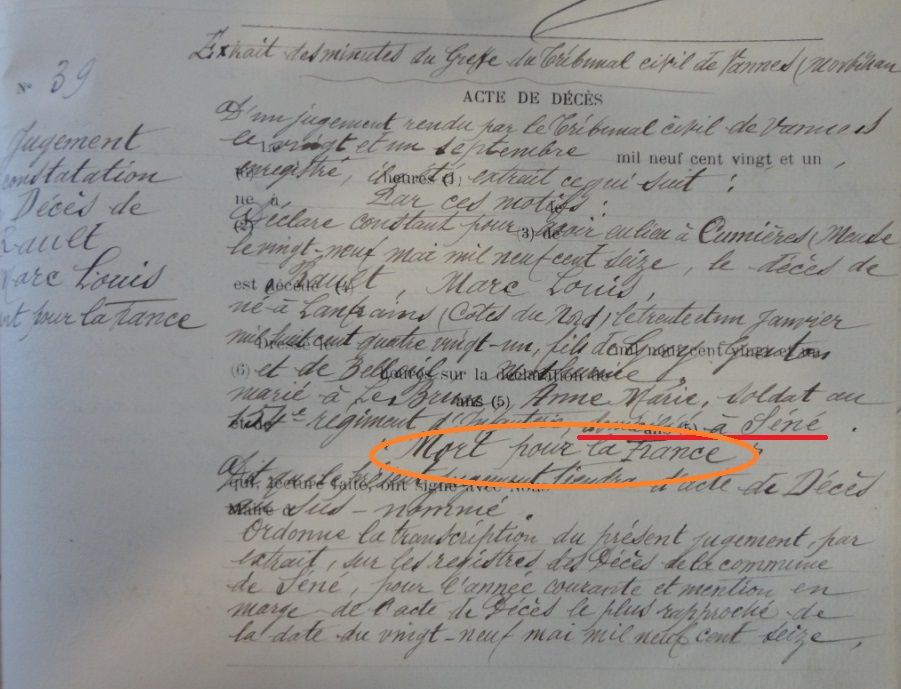 Extrait des minutes du Greffe du Tribunal civil de Vannes (Morbihan
N° 39
ACTE DE DÉCÈS
Jugement
constatation
Décès de
Rault
Marc Louis
nt pour la France
D'un jugement rendu par le Tribunal civil de Vannes
le vingt et un septembre mil neuf cent vingt et un,
enregistré, il a été extrait ce qui suit :
né à Par ces motifs :
Déclare constant pour avoir eu lieu à Cumières (Meuse
le vingt-neuf mai mil neuf cent seize, le décès de
est décédé (4) Rault, Marc Louis,
né à Lanfains (Côtes du Nord) le trente et un Janvier
mil huit cent quatre vingt-un, fils de
(6) et de sur la déclaration de
marié à Le Anne Marie, soldat au
régiment d'Infanterie, domicilié à Séné.
"Mort pour la France"
Dit que le présent jugement tiendra d'acte de Décès
au Sus-nommé.
Ordonne la transcription du présent jugement, par
extrait, sur les registres des Décès de la commune
de Séné, pour l'année courante et mention en
marge de l'acte de Décès le plus rapproché de
la date du vingt-neuf mai mil neuf cent seize,